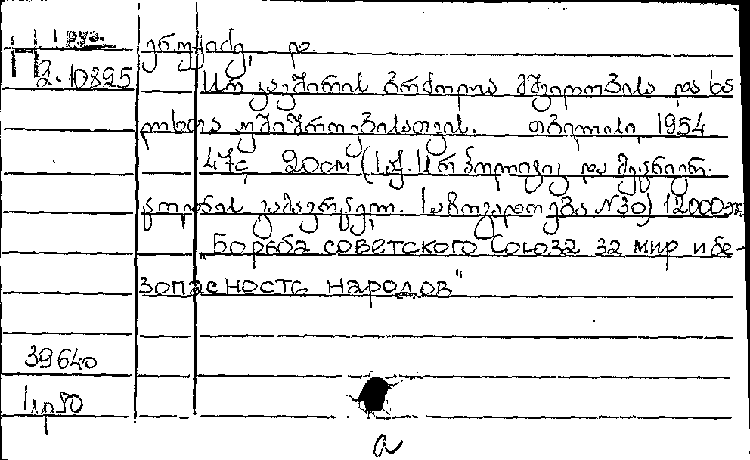 1 груз.
П
3.10825
ენუქიძე, დ.
სსრ კავშირის ბრძოლა მშვიდობისა და ხა
ლხთა უშიშროებისათვის. თბილისი, 1954
47გ. 20cm (საქ. სსრ პოლიტიკ. და მეცნიერ.
ცოდნის გამავრცელ. საზოგადოება N30) 12000
"Борьба советского Союза за мир и бе-
зопасность народов"
39640
1 р 50
a